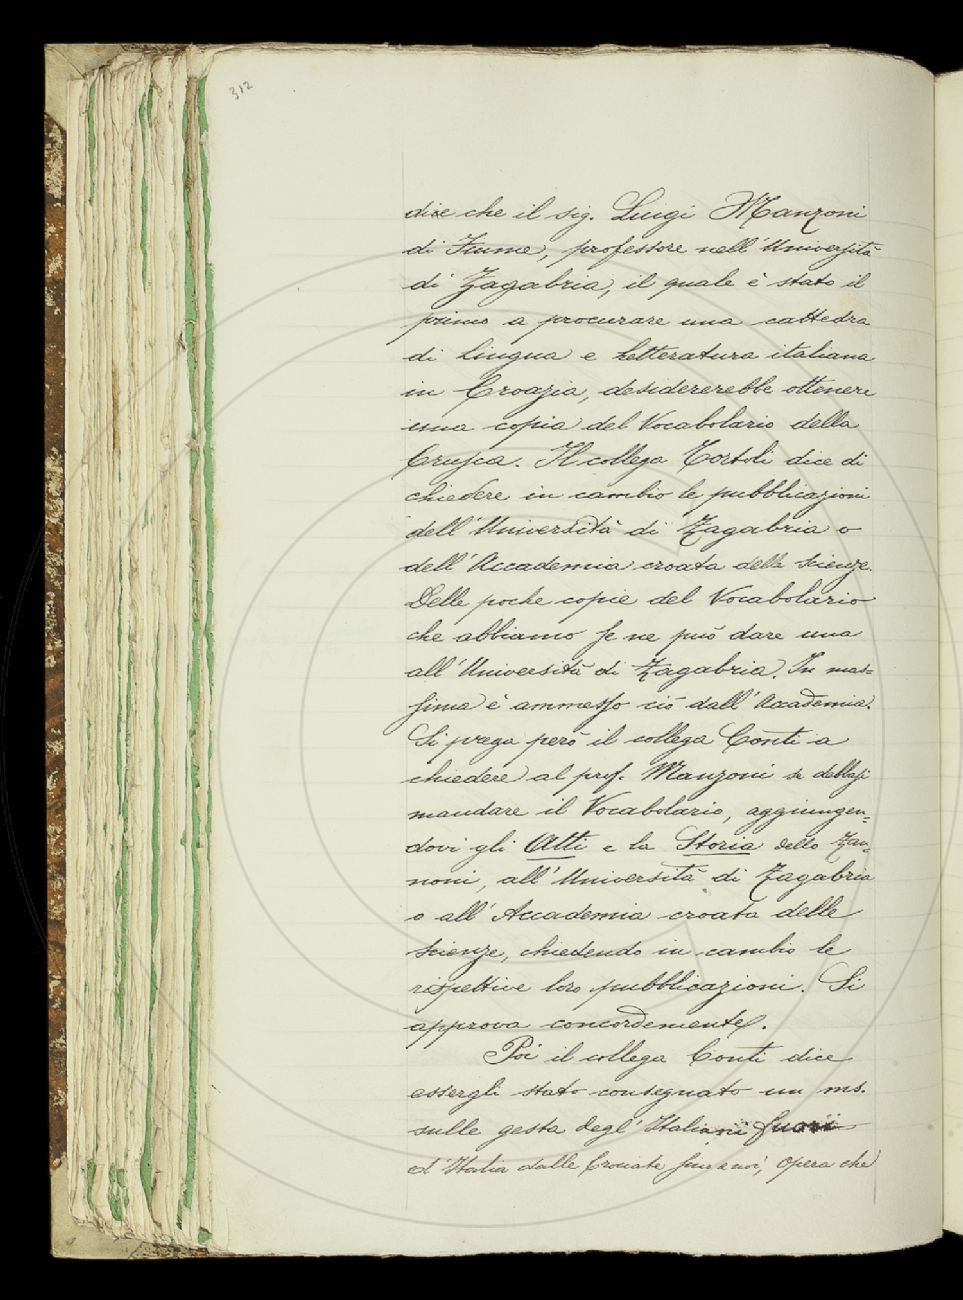 312
dice che il sig. Luigi Manzoni
di Fiume, professore nell'Università
di Zagabria, il quale è stato il
primo a procurare una cattedra
di lingua e letteratura italiana
in Croazia, desidererebbe ottenere
una copia del Vocabolario della
Crusca. Il collega Tortoli dice di
chiedere in cambio le pubblicazioni
dell'Università di Zagabria o
dell'Accademia croata delle scienze.
Delle poche copie del Vocabolario
che abbiamo se ne può dare una
all'Università di Zagabria. In mas=
sima è ammesso ciò dall'Accademia.
Si prega però il collega Conti a
chiedere al prof. Manzoni se debbasi
mandare il Vocabolario, aggiungen=
dovi gli Atti e la Storia dello Zan=
noni, all'Università di Zagabria
o all'Accademia croata delle
scienze, chiedendo in cambio le
rispettive loro pubblicazioni. Si
approva concordemente.
Poi il collega Conti dice
essergli stato consegnato un ms.
sulle gesta degl'Italiani fuori
d'Italia dalle Crociate sino a noi, opera che